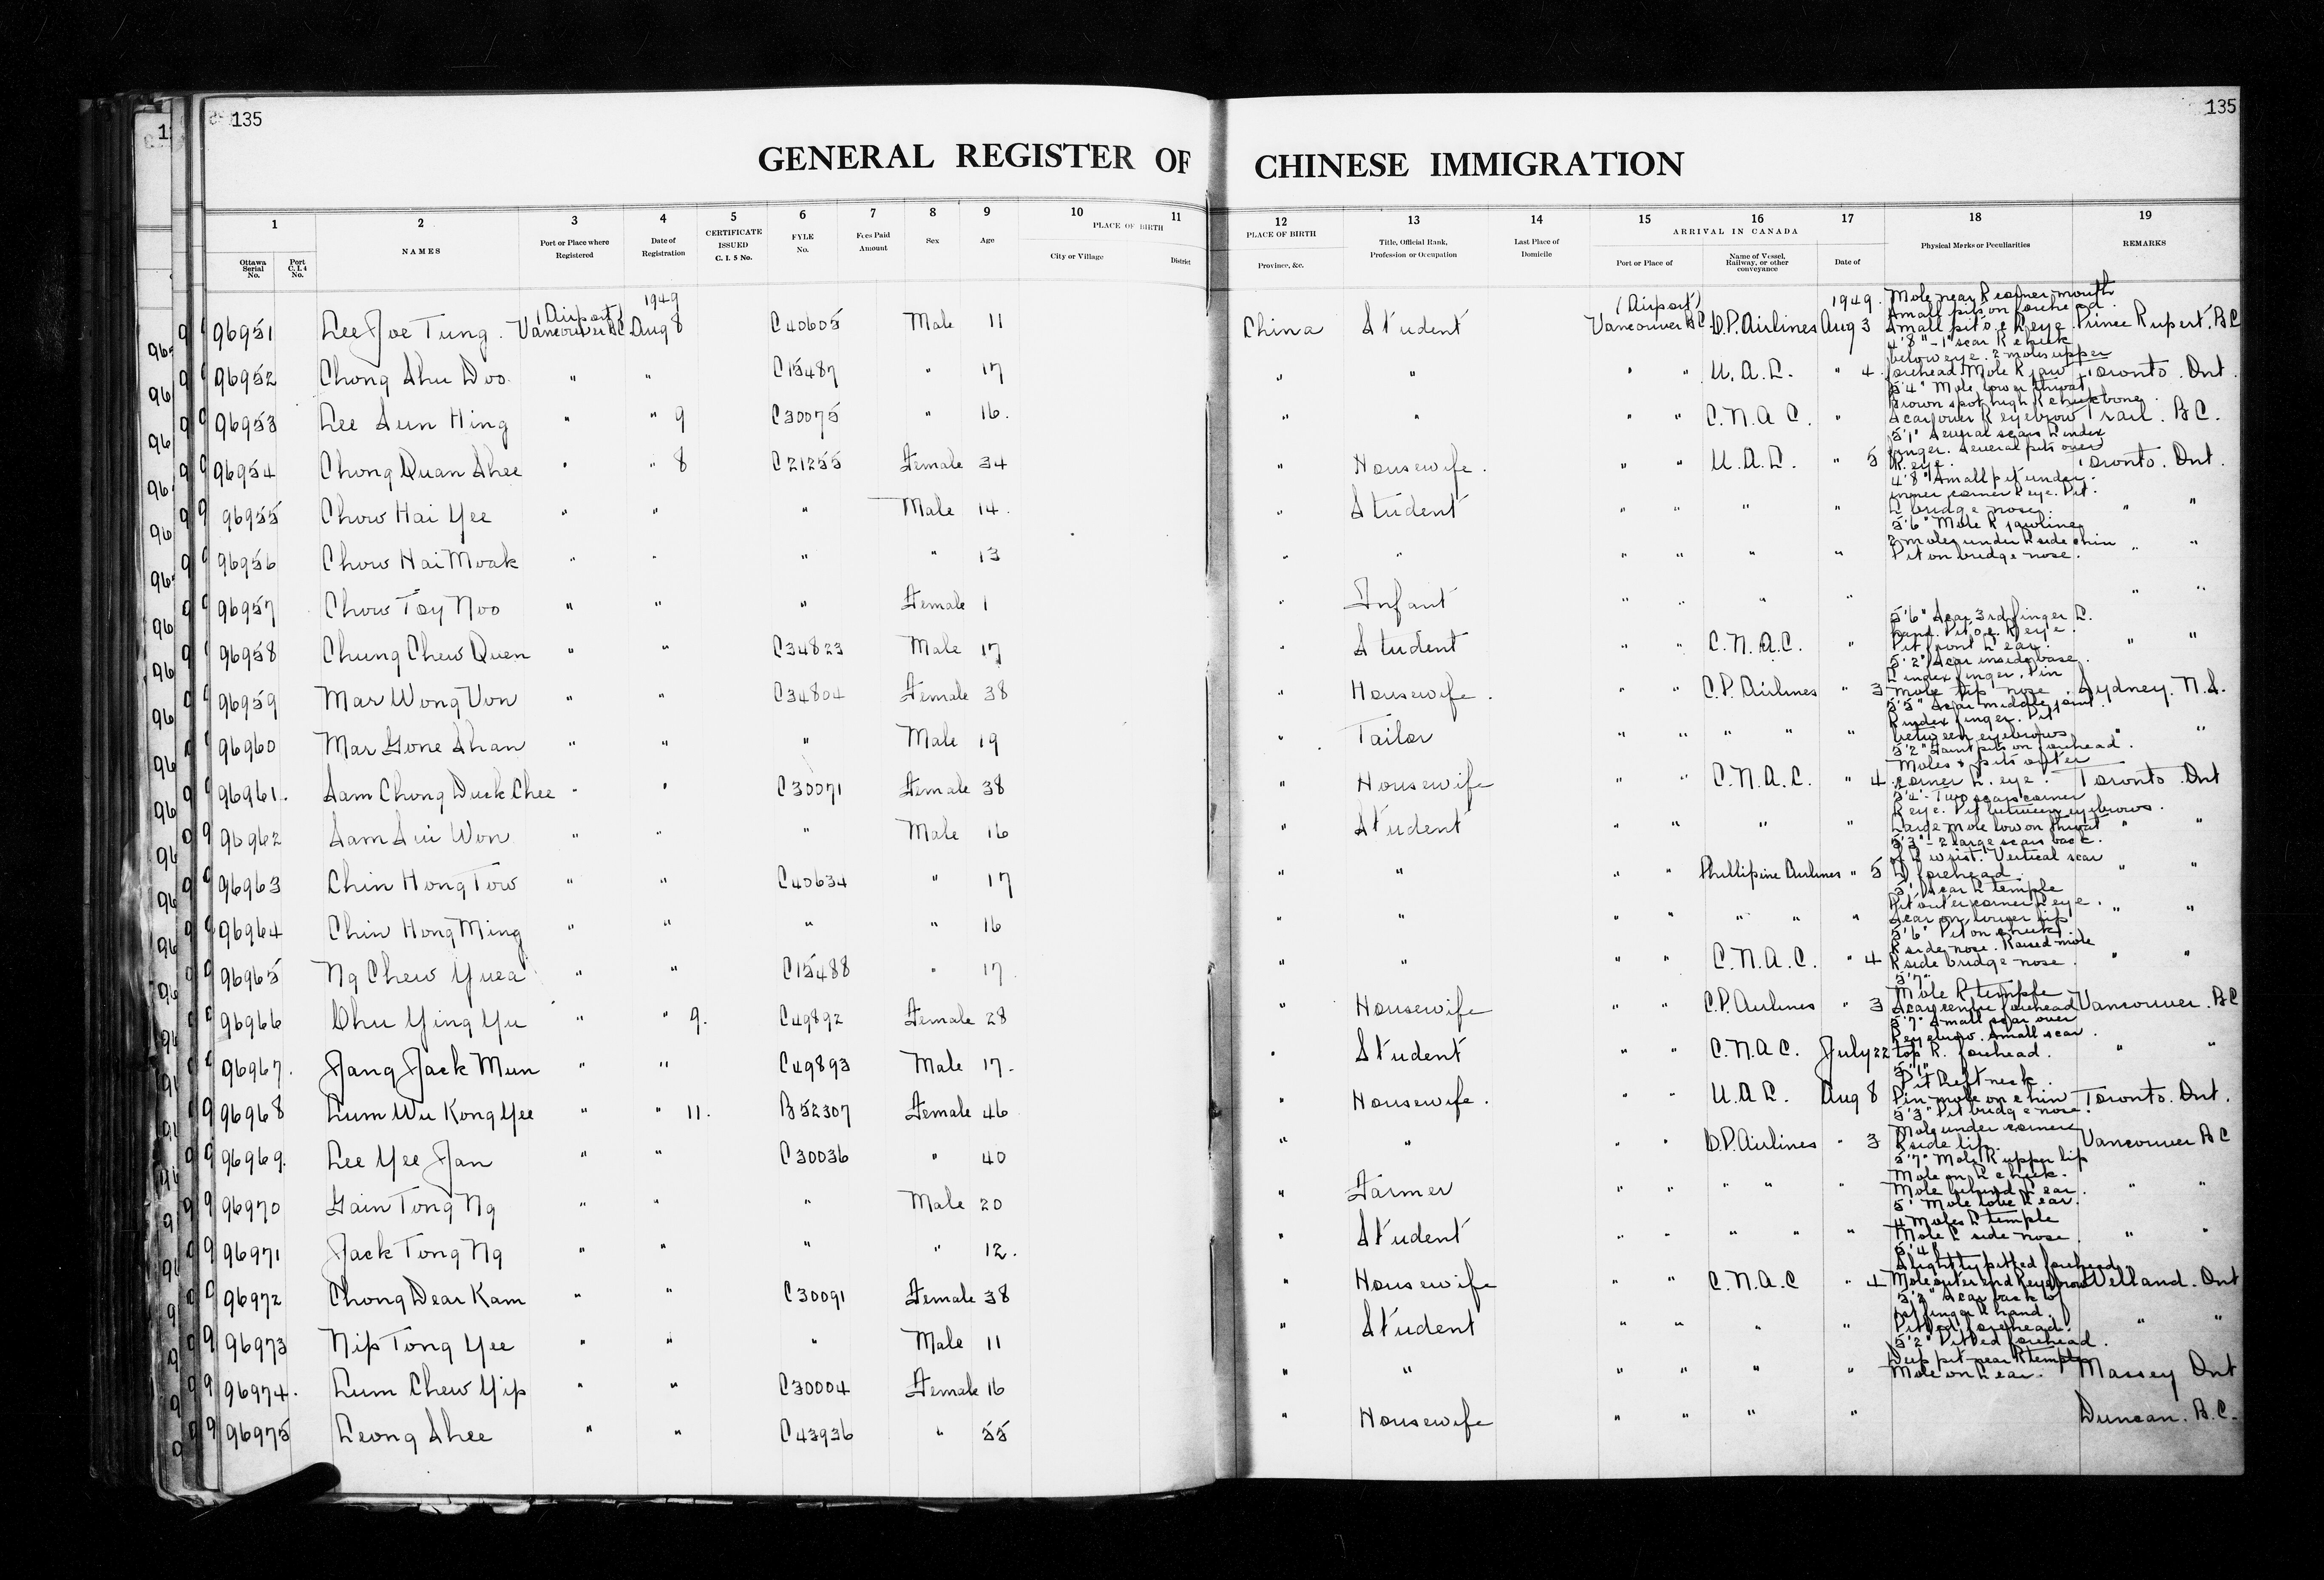 135
135
GENERAL REGISTER OF CHINESE IMMIGRATION
1 2 3 4 5 6 7 8 9 10 11 12 13 14 15 16 17 18 19
Ottawa Serial No. Port C.I.4 No. NAMES Port or Place where Registered Date of Registration CERTIFICATE ISSUED C. I. 5 No. FYLE No. Fees Paid Amount Sex Age PLACE OF BIRTH City or Village District PLACE OF BIRTH Province, &c. Title, Official Rank, Profession or Occupation Last Place of Domicile ARRIVAL IN CANADA Port or Place of Name of Vessel, Railway, or other conveyance Date of Physical Marks or Peculiarities REMARKS
96951 Lee Joe Tung. (Airport) Vancouver BC 1949 Aug 8 C40605 Male 11 China Student (Airport) Vancouver BC C.P. Airlines 1949. Aug 3 Mole near R corner mouth Small pits on forehead. Small pit o.c. L eye Prince Rupert. BC
96952 Chong Shu Doo. " " C15487 " 17 " " " " U.A.L. " 4. 4'8" - 1" scar R cheek below eye. 2 moles upper forehead Mole R jaw Toronto. Ont.
96953 Lee Sun Hing " " 9 C30075 " 16. " " " " C.N.A.C. " 5'4" Mole lower throat Brown spot high R cheekbone. Scar over R eyebrow Trail. BC.
96954 Chong Quan Shee " " 8 C21255 Female 34 " Housewife. " " U.A.L. " 5 5'1" Several scars L index finger. Several pits over R eye. Toronto. Ont.
96955 Chow Hai Yee " " " Male 14. " Student " " " " 4'8" Small pit under inner corner R eye. Pit L bridge nose. " "
96956 Chow Hai Moak " " " " 13 " " " " " " 5'6" Mole R jawline 2 moles under L side chin Pit on bridge nose. " "
96957 Chow Tay Noo " " " Female 1 " Infant " " " " " "
96958 Chung Chew Quen " " C34823 Male 17 " Student " " C.N.A.C. " 5'6" Scar 3rd finger L. hand. Pit o.c. R eye. Pit front L ear. " "
96959 Mar Wong Von " " C34804 Female 38 " Housewife. " " C.P. Airlines " 3 5'2" Scar inside base L index finger. Pin mole tip nose. Sydney. N.S.
96960 Mar Gone Shan " " " Male 19 " Tailor " " " " " 5'5" Scar middle joint R index finger. Pit between eyebrows " "
96961. Sam Chong Duck Chee " " C30071 Female 38 " Housewife " " C.N.A.C. " 4 5'2" Faint pits on forehead. Moles & pits outer corner L. eye. Toronto. Ont
96962 Sam Sui Won " " " Male 16 " Student " " " " 5'4" - Two scars corner R eye. Pit between eyebrows. Large mole low on throat " "
96963 Chin Hong Tow " " C40634 " 17 " " " " Phillipine Airlines " 5 5'3" - 2 large scars back of L wrist. Vertical scar L forehead. " "
96964 Chin Hong Ming " " " " 16 " " " " " " " 5'1" Scar L temple Pit outer corner L eye. Scar on lower lip " "
96965 Ng Chew Yuea " " C15488 " 17. " " " " C.N.A.C. " 4 5'6" Pit on cheek R side nose. Raised mole R side bridge nose. " "
96966 Chu Ying Yu " " 9. C49892 Female 28 " Housewife " " C.P. Airlines " 3 5'7" Mole R temple Scar centre forehead Vancouver. BC
96967. Jang Jack Mun " " C49893 Male 17. " Student " " C.N.A.C. July 22 5'7" Small scar over R eyebrow. Small scar top R. forehead. " "
96968 Lum Wu Kong Yee " " 11. B52307 Female 46 " Housewife. " " U.A.L. Aug 8 5'1" Pit left neck. Pin-mole on chin Toronto. Ont.
96969. Lee Yee Jan " " C30036 " 40 " " " " C.P. Airlines " 3 5'3" Pit bridge nose. Mole under corner R side lip. Vancouver BC
96970 Gain Tong Ng " " " Male 20 " Farmer " " " " " 5'7" Mole R upper lip Mole on L cheek. Mole behind L ear. " "
96971 Jack Tong Ng " " " " 12. " Student " " " " " 5' Mole lobe L ear. 4 Moles L temple Mole L side nose " "
96972 Chong Dear Kam " " C30091 Female 38 " Housewife " " C.N.A.C " 4 5'4" Slightly pitted forehead. Mole outer end R eyebrow Welland. Ont
96973 Nip Tong Yee " " " Male 11 " Student " " " " 5'2" Scar back of 1st finger L hand. Pitted forehead. " "
96974. Lum Chew Yip " " C30004 Female 16 " " " " " " 5'2" Pitted forehead. Deep pit near R temple Mole on L ear. Massey Ont
96975 Leong Shee " " C43936 " 55 " Housewife " " " " Duncan. B.C.